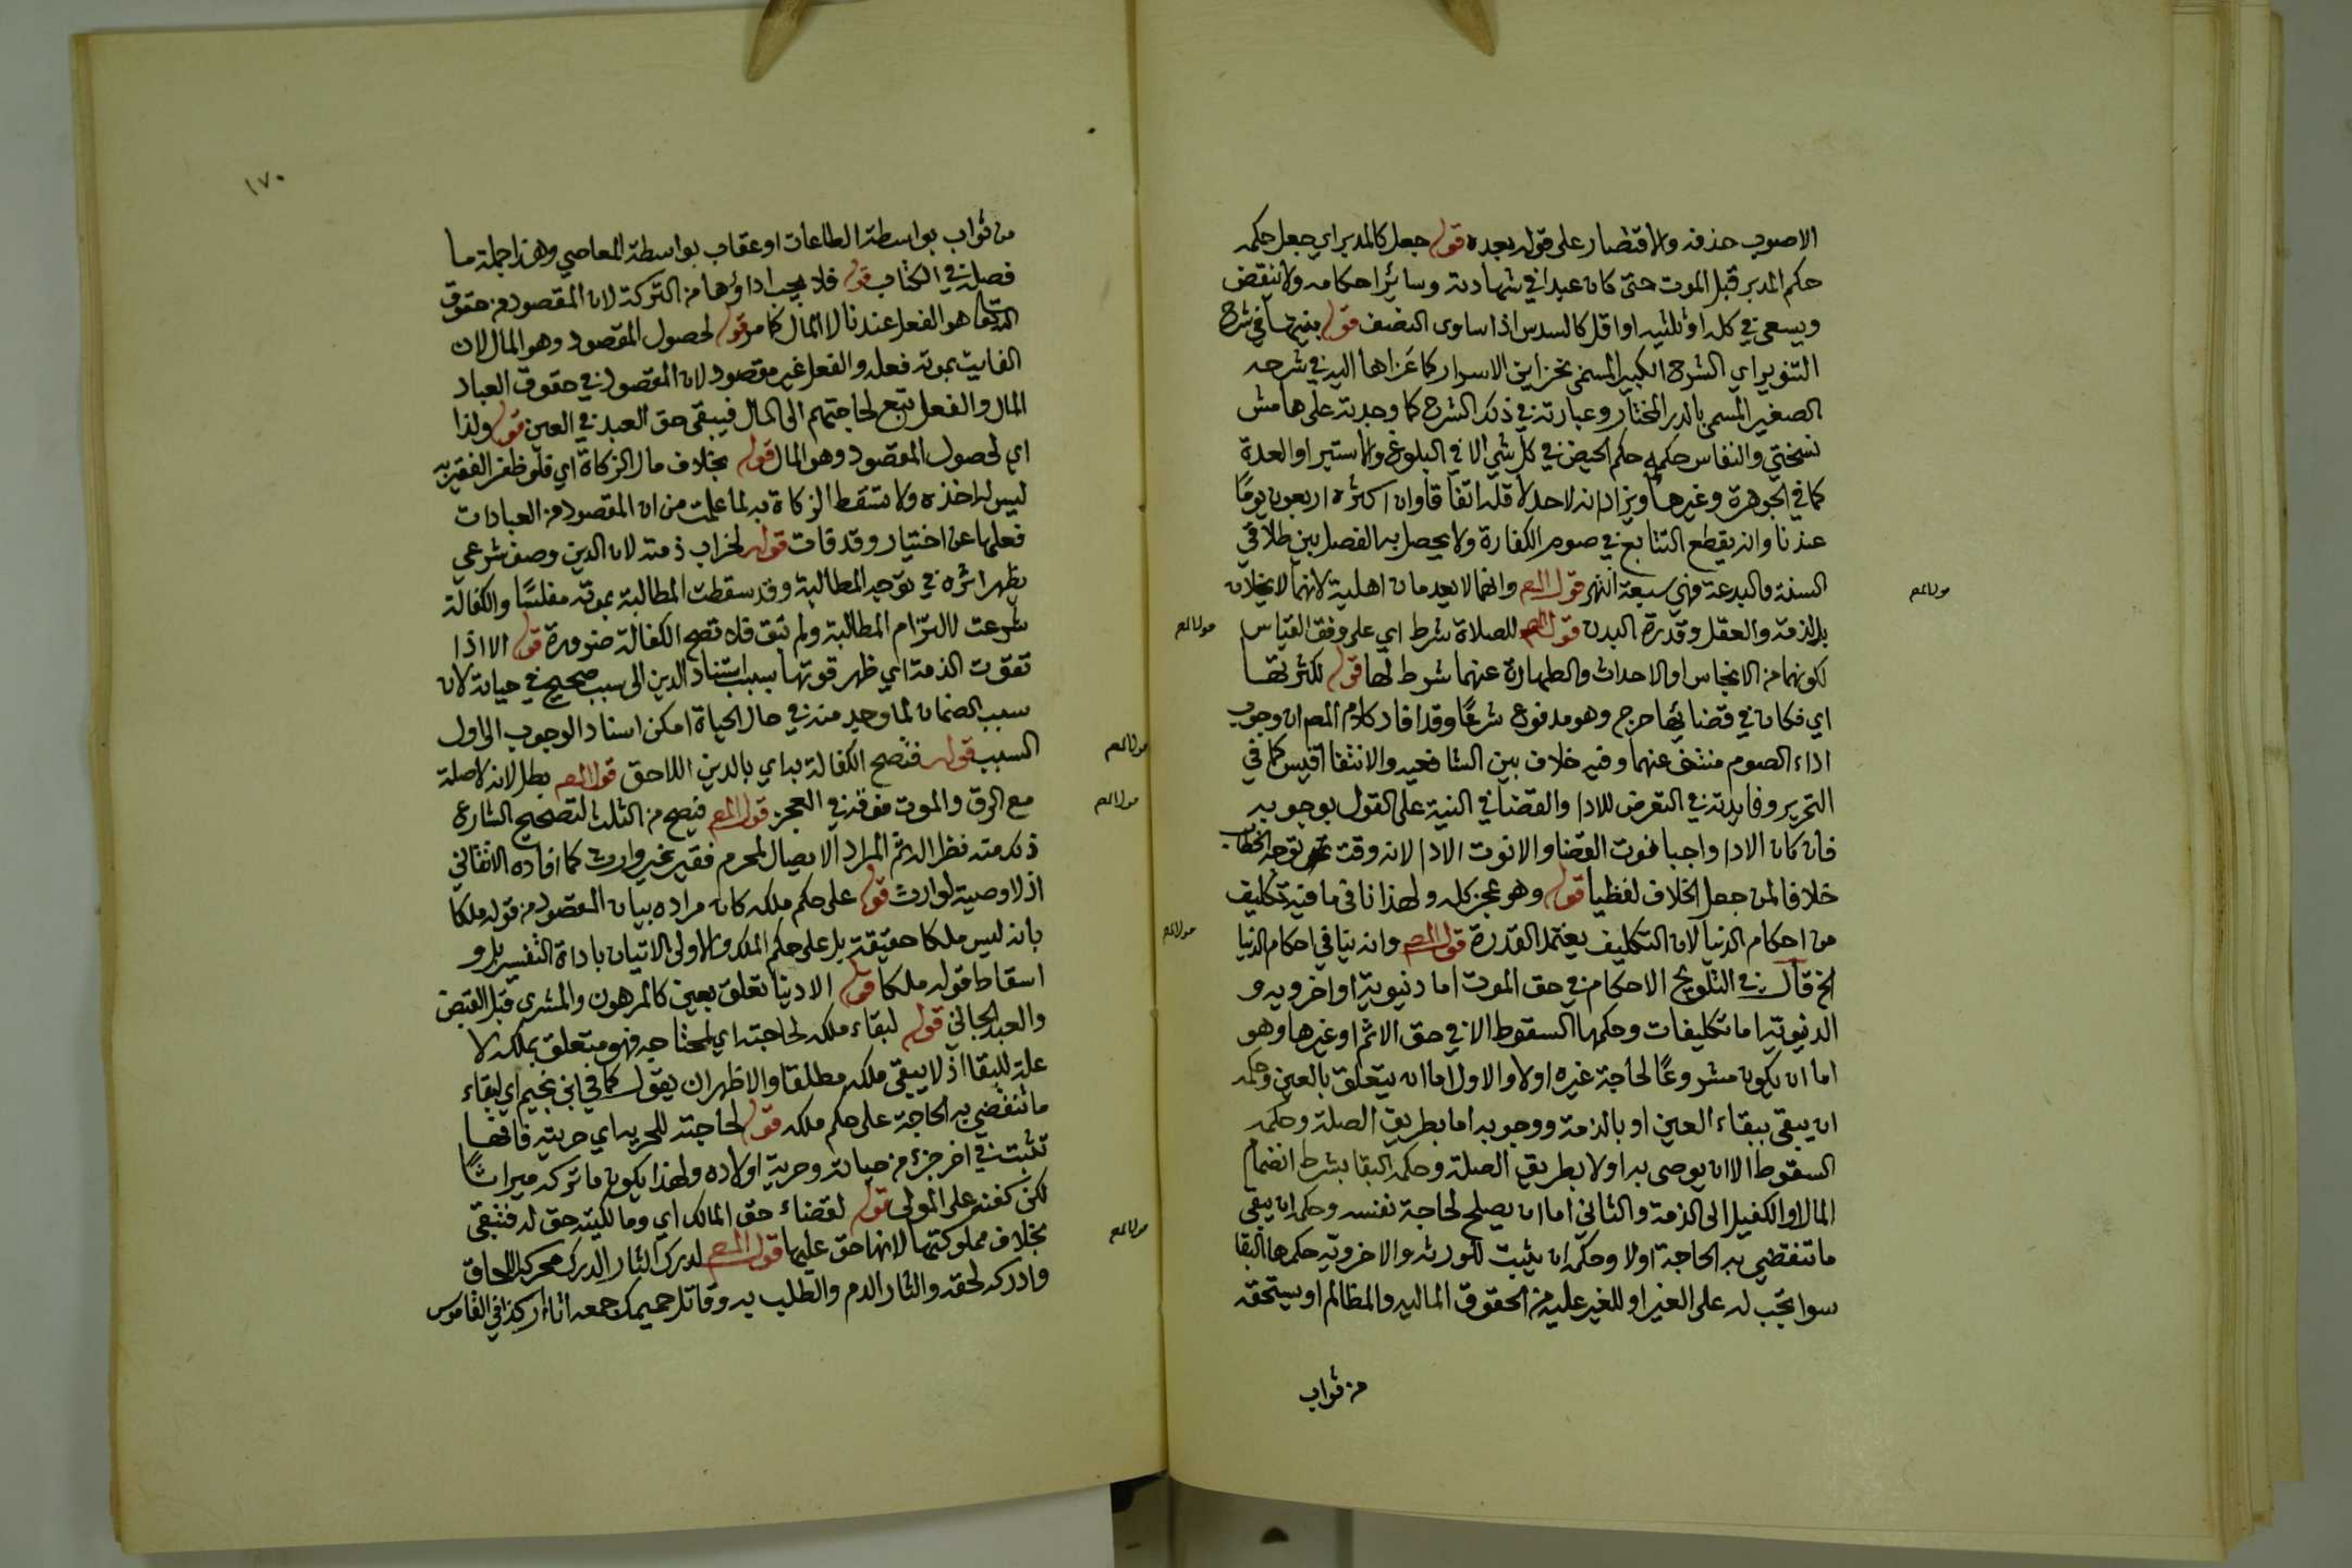 الاصوب حذفه والاقتصار على قوله بعده قوله جعل كالمدبر اي جعل حكمه
حكم المدبر قبل الموت حتى كان عبدا في شهادته وسائر احكامه ولا ينقض
ويسعى في كله او ثلثيه او اقل كالسدس اذا ساوى النصف قوله بنيتها في شرح
التنوير اي الشرح الكبير المسمى بخزاين الاسرار كما عزاها اليه في شرحه
الصغير المسمى بالدر المختار وعبارته في ذلك الشرح كما وجدته على هامش
نسختي والنفاس حكمه حكم الحيض في كل شي الا في البلوغ والاستبراء والعدة
كما في الجوهرة وغيرها ويزاد انه لاحد لاقله اتفاقا وان اكثره اربعون يوما
عندنا وانه يقطع التتابع في صوم الكفارة ولا يحصل به الفصل بين طلاقي
السنة والبدعة فهي سبعة انتهى قول المص وانهما لا يعدمان اهلية لانهما لا يخلان
بالذمة والعقل وقدرة البدن قول المص للصلاة شرط اي على وفق القياس
لكونهما من الانجاس او الاحداث والطهارة عنهما شرط لها قوله لكثرتها
اي فكان في قضائها حرج وهو مدفوع شرعًا وقد افاد كلام المص ان وجوب
اداء الصوم منتف عنهما وفيه خلاف بين الشافعيه والانتفا اقيس كما في
التحرير وفايدته في التعرض للادا والقضا في النية على القول بوجوبه
فان كان الادا واجبا نوت القضا والا نوت الادا لانه وقت توجه الخطاب
خلافا لمن جعل الخلاف لفظيا قوله وهو عجز كله ولهذا نافى ما فيه تكليف
من احكام الدنيا لان التكليف يعتمد القدرة قول المص وانه ينافي احكام الدنيا
الخ قال في التلويح الاحكام في حق الموت اما دنيوية او اخرويه و
الدنيوية اما تكليفات وحكمها السقوط الا في حق الاثم او غيرها وهو
اما ان يكون مشروعًا لحاجة غيره اولا والاول اما ان يتعلق بالعين وحكمه
ان يبقى ببقاء العين او بالذمة ووجوبه اما بطريق الصلة وحكمه
السقوط الا ان يوصى به اولا بطريق الصلة وحكمه البقا بشرط انضمام
المال او الكفيل الى الذمة والثاني اما ان يصلح لحاجة نفسه وحكمه ان يبقى
ما تنقضي به الحاجة اولا وحكمه ان يثبت للورثه والاخروية حكمها البقا
سوا يجب له على الغير او للغير عليه من الحقوق الماليه والمظالم او يستحقه
من ثواب
١٧٠
من ثواب بواسطة الطاعات او عقاب بواسطة المعاصي وهذا جملة ما
فصله في الكتاب قوله فلا يجب اداؤها من التركة لان المقصود من حقوق
الله تعا هو الفعل عندنا لا المال كما مر قوله لحصول المقصود وهو المال لان
الفايت بموته فعله والفعل غير مقصود لان المقصود في حقوق العباد
المال والفعل تبع لحاجتهم الى المال فيبقى حق العبد في العين قوله ولذا
اي لحصول المقصود وهو المال قوله بخلاف مال الزكاة اي فلو ظفر الفقير به
ليس له اخذه ولا تسقط الزكاة به لما علمت من ان المقصود من العبادات
فعلها عن اختيار وقد فات قوله لخراب ذمته لان الدين وصف شرعي
يظهر اثره في توجيه المطالبة وقد سقطت المطالبة بموته مفلسًا والكفالة
شرعت لالتزام المطالبة ولم تبق فلا تصح الكفالة ضرورة قوله الا اذا
تقوت الذمة اي ظهر قوتها بسبب استناد الدين الى سبب صحيح في حياته لان
سبب الضمان لما وجد منه في حال الحياة امكن اسناد الوجوب الى اول
السبب قوله فتصح الكفالة به اي بالدين اللاحق قول المص بطل لانه لا صلة
مع الرق والموت فوقه في العجز قول المص فيصح من الثلث لتصحيح الشارع
ذلك منه نظرا له ثم المراد الايصال لمحرم فقير غير وارث كما افاده الاتقاني
اذ لا وصية لوارث قوله على حكم ملكه كان مراده بيان المقصود من قوله ملكا
بانه ليس ملكا حقيقة بل على حكم الملك والاولى الاتيان باداة التفسير بل و
اسقاط قوله ملكا قوله الا دينا تعلق بعين كالمرهون والمشرى قبل القبض
والعبد الجاني قوله لبقاء ملكه لحاجته اي لمحتاجه فهو متعلق بملكه لا
علة للبقا اذ لا يبقى ملكه مطلقا والاظهر ان يقول كما في ابن نجيم اي لبقاء
ما تنقضي به الحاجة على حكم ملكه قوله لحاجته للحرية اي حريته فانها
تثبت في اخر جزء من حياته وحرية اولاده ولهذا يكون ما تركه ميراثًا
لكن كفنه على المولى قوله لقضاء حق المالك اي ومالكيته حق له فتبقى
بخلاف مملوكيتها لانها حق عليها قول المص لدرك الثار الدرك محركة اللحاق
وادركه لحقه والثار الدم والطلب به وقاتل حميمك جمعه اثار كذا في القاموس